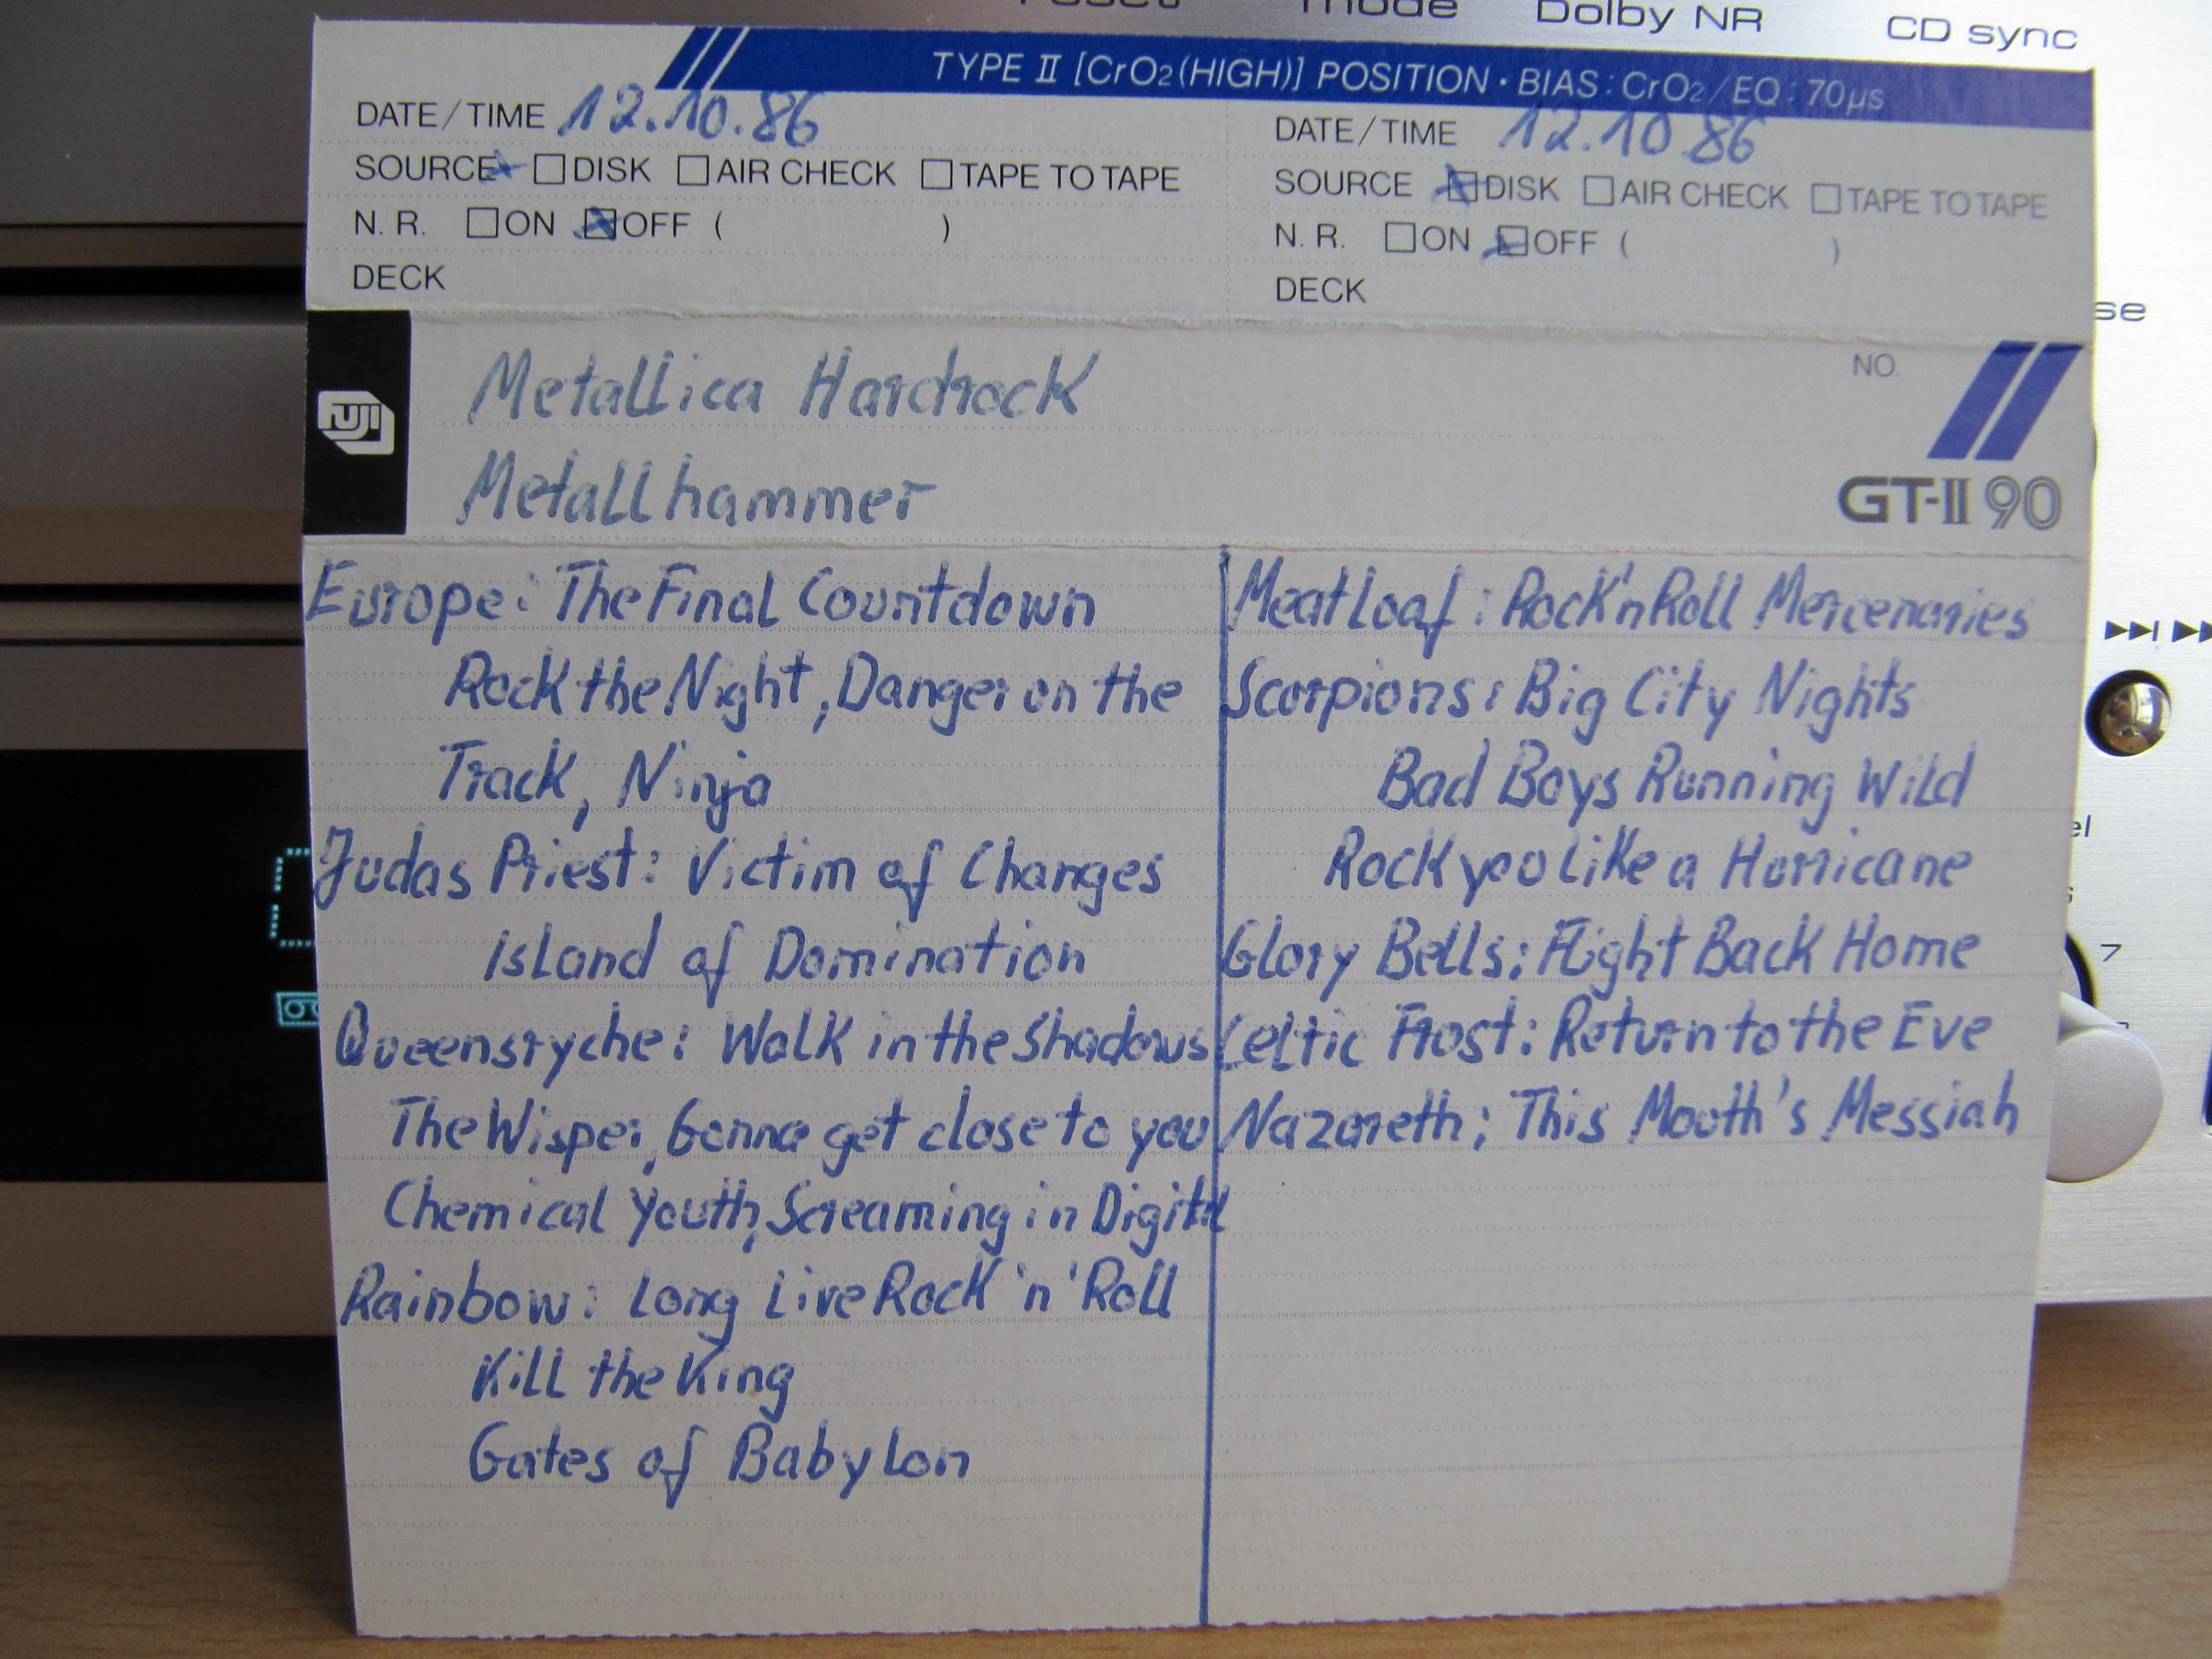 mode Dolby NR CD sync
TYPE II [CrO2(HIGH)] POSITION · BIAS : CrO2/EQ : 70µs
DATE/TIME 12.10.86
SOURCE DISK AIR CHECK TAPE TO TAPE
N. R. ON OFF ( )
DECK
DATE/TIME 12.10 86
SOURCE DISK AIR CHECK TAPE TO TAPE
N. R. ON OFF ( )
DECK
FUJI
Metallica Hardrock
Metallhammer
NO.
GT-II 90
Europe: The Final Countdown
Rock the Night, Danger on the
Track, Ninja
Judas Priest: Victim of Changes
Island of Domination
Queensryche: Walk in the Shadows
The Wisper, Gonna get close to you
Chemical Youth, Screaming in Digital
Rainbow: Long Live Rock 'n' Roll
Kill the King
Gates of Babylon
Meat Loaf: Rock'n Roll Mercenaries
Scorpions: Big City Nights
Bad Boys Running Wild
Rock you like a Hurricane
Glory Bells: Flight Back Home
Celtic Frost: Return to the Eve
Nazareth: This Mouth's Messiah
7